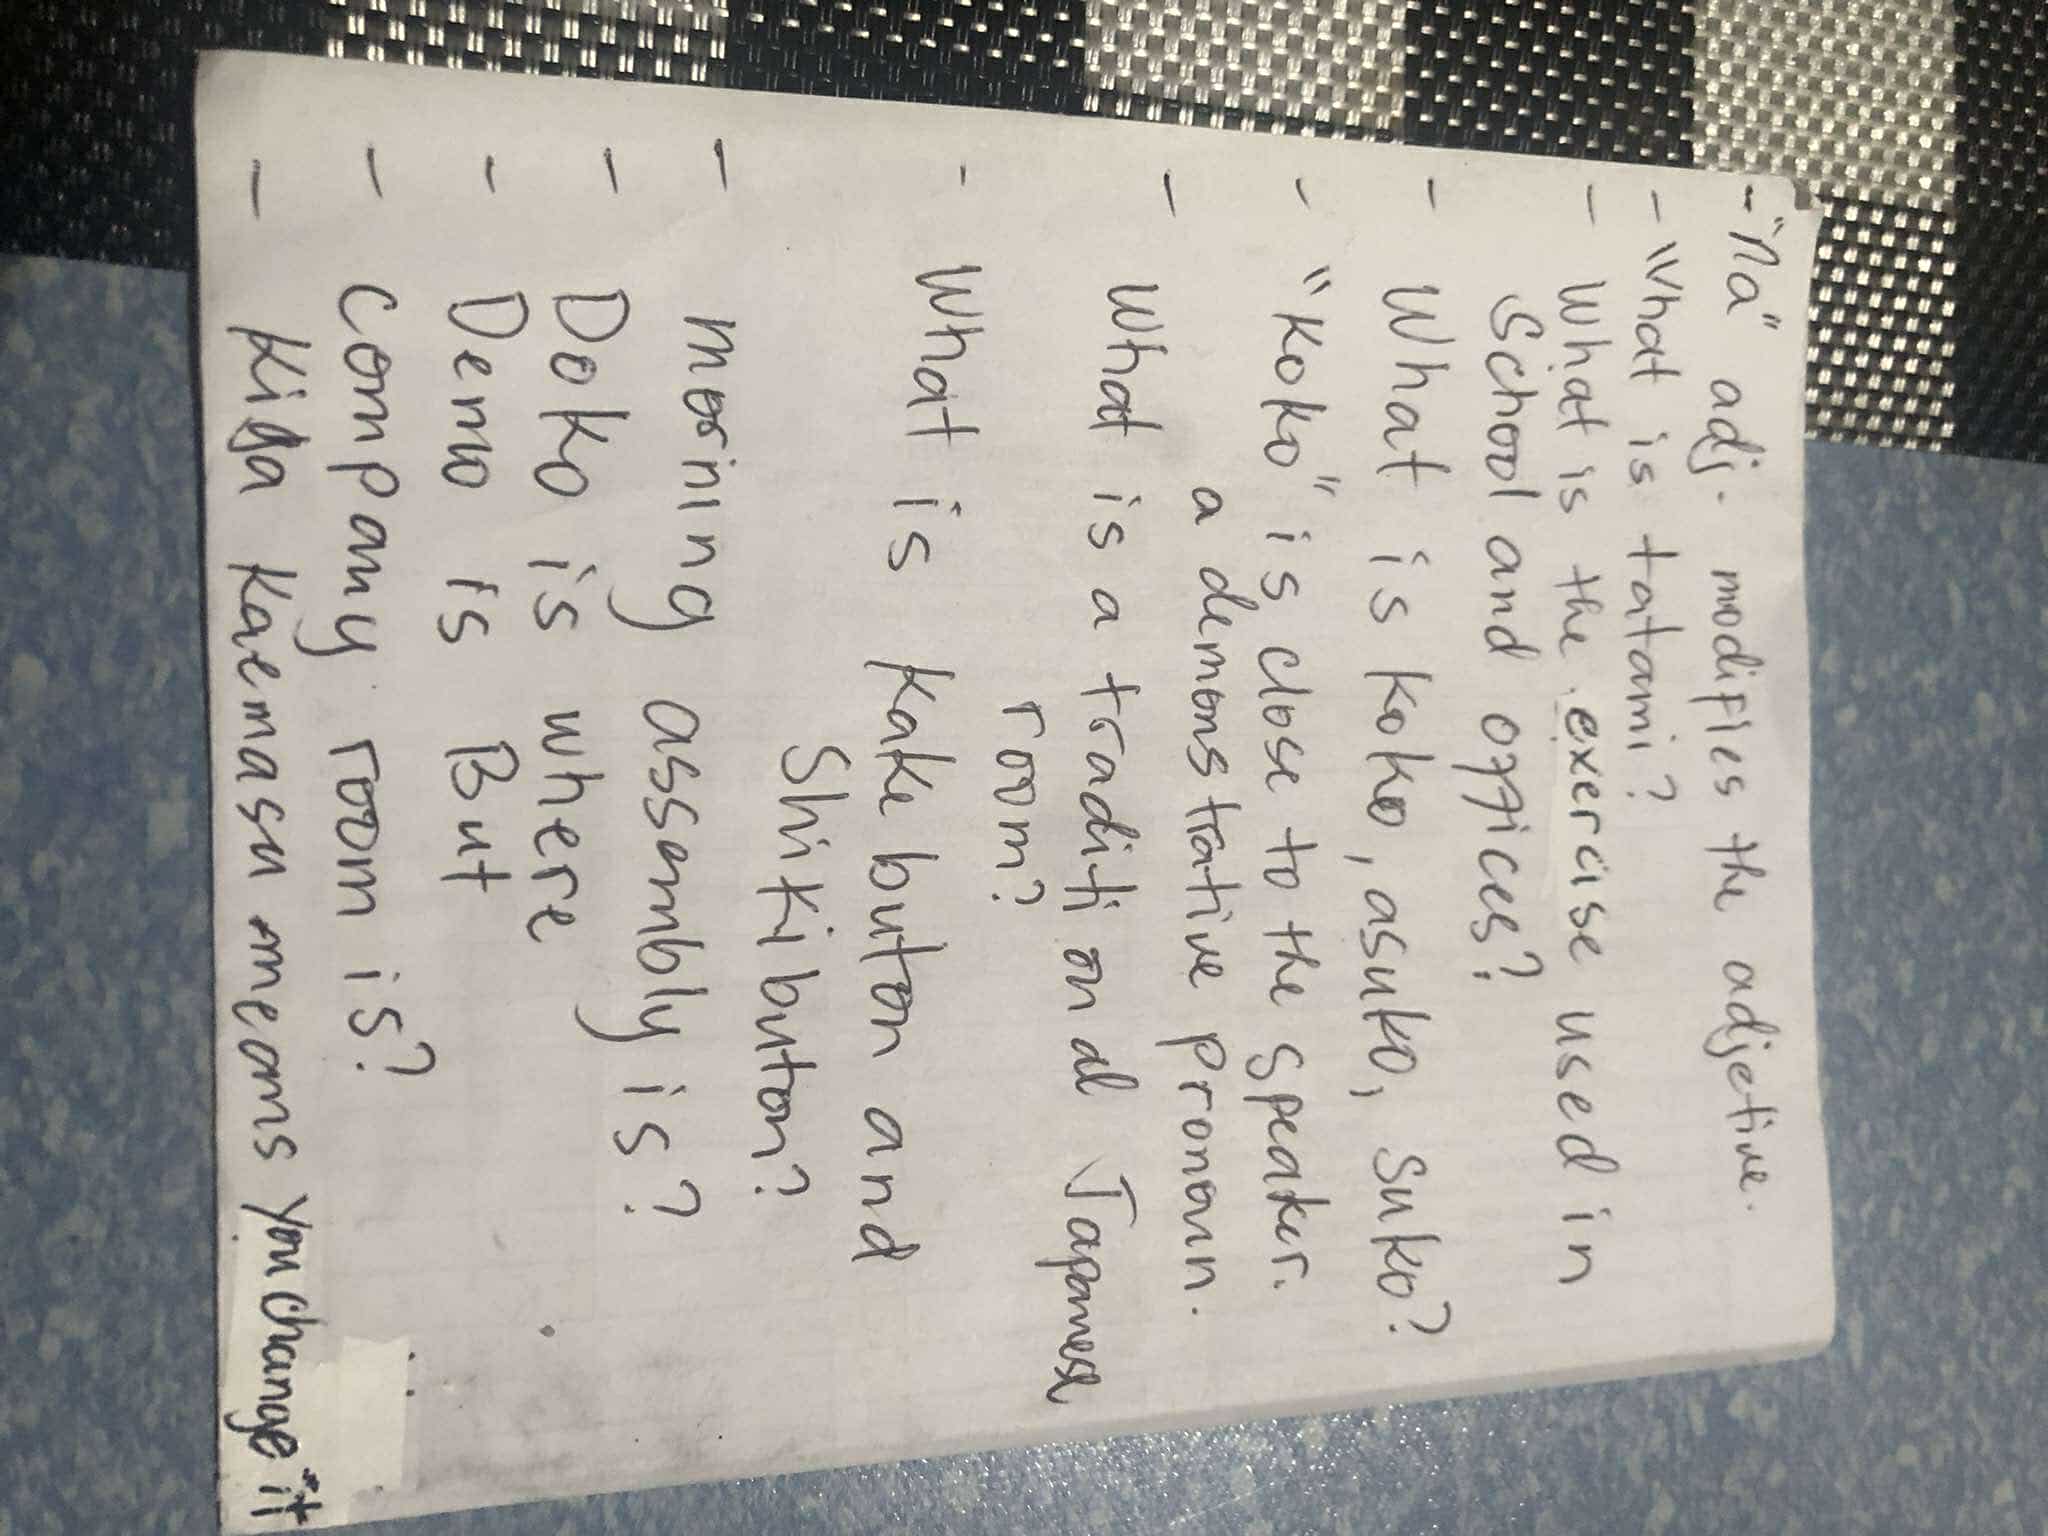 - "na" adj. modifies the adjetive.
- What is tatami?
- What is the exercise used in
School and offices?
- What is koko, asuko, suko?
- "Koko" is close to the speaker.
a demonstrative pronoun.
- What is a traditional Japanese
room?
- What is Kake buton and
Shiki buton?
- morning assembly is?
- Doko is where
- Demo is But
- company room is?
- Kiga Kaemasu means you change it